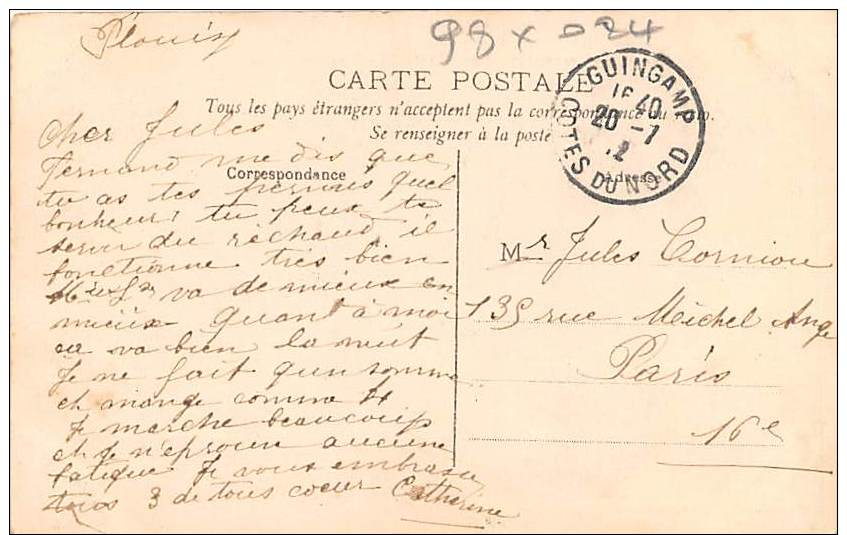 Plouisy
98 x 24
CARTE POSTALE
Tous les pays étrangers n'acceptent pas la correspondance au recto.
Se renseigner à la poste
GUINGAMP
16 40
20 -7
COTES DU NORD
Correspondance
Adresse
Cher Jules
Fernand me dis que
tu as tes permis quel
bonheur! tu peux te
servir du réchaud, il
fonctionne très bien
va de mieux en
mieux quant à moi
ca va bien la nuit
Je ne fait qun somme
et mange comme 4
Je marche beaucoup
et Je n'eprouve aucune
fatigue Je vous embrasse
tous 3 de tous coeur Catherine
Mr Jules Corniou
135 rue Meichel Ange
Paris
16e